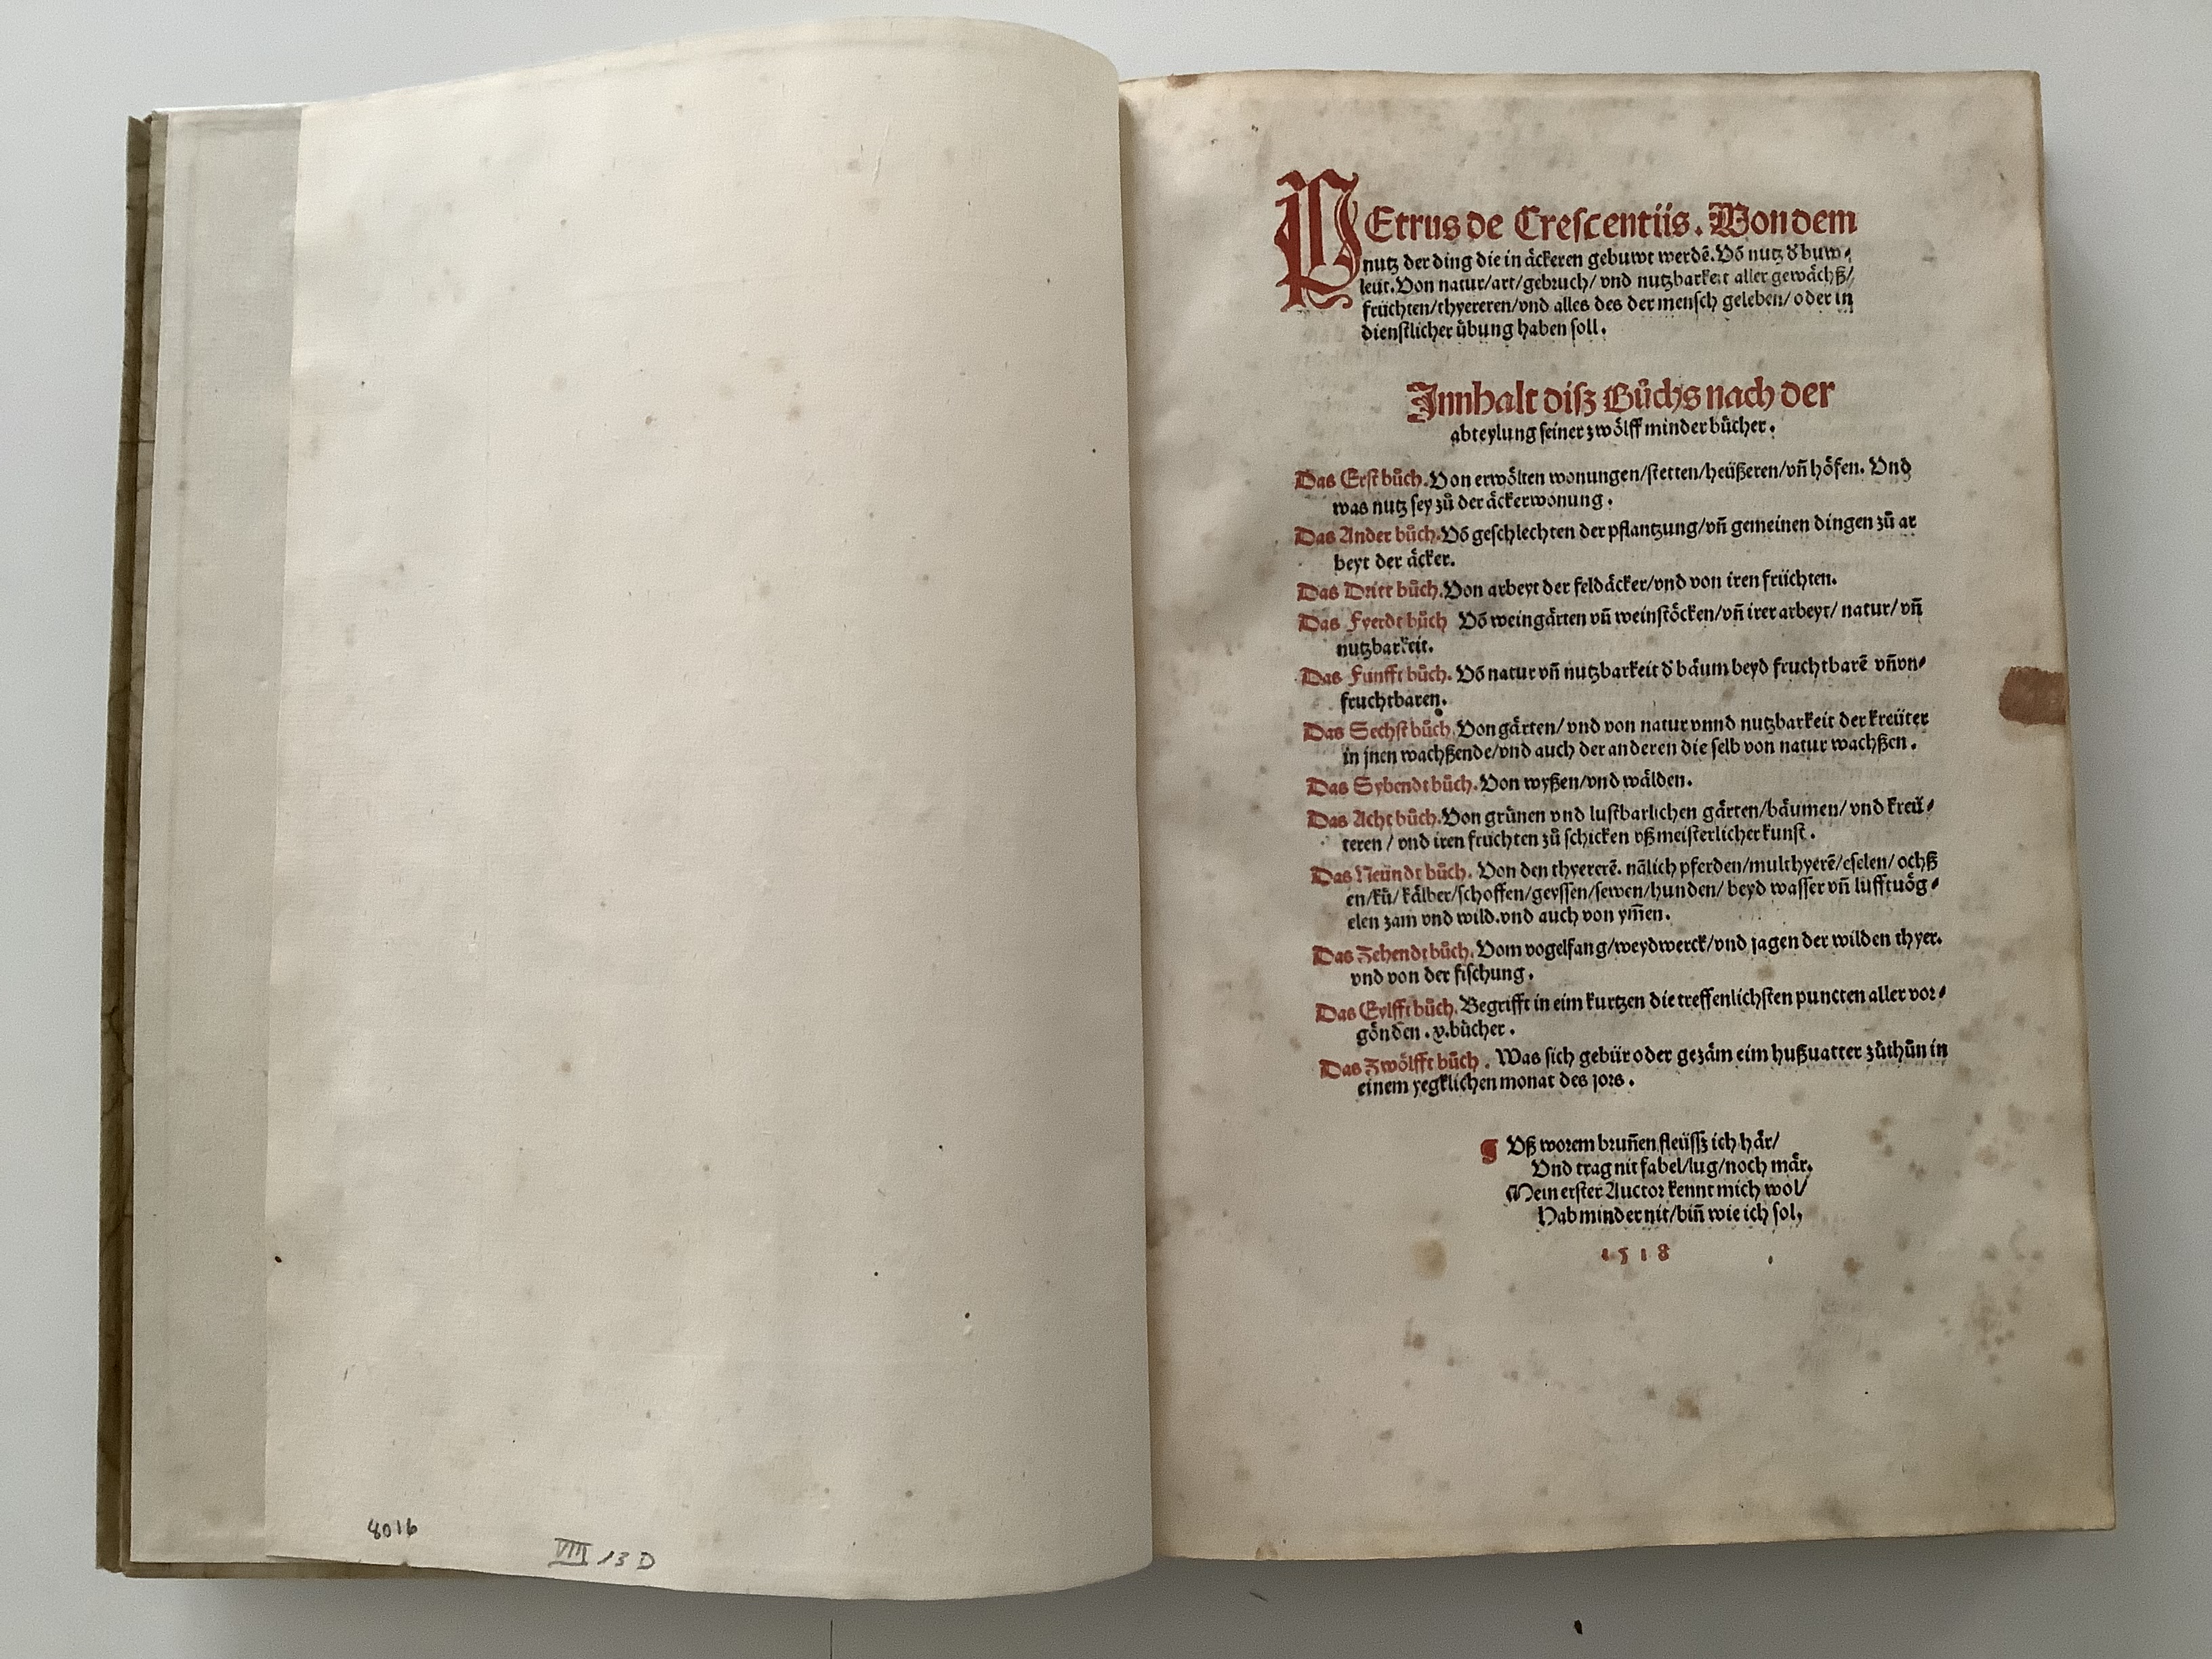 8016
VIII 13 D
PEtrus de Crescentiis. Von dem
nutz der ding die in äckeren gebuwt werdē. Vō nutz d̉ buw⸗
leüt. Von natur/art/gebruch/ vnd nutzbarkeit aller gewächß/
früchten/thyereren/vnd alles des der mensch geleben/oder in
dienstlicher übung haben soll.
Innhalt disz Bůchs nach der
abteylung seiner zwölff minder bücher.
Das Erst bůch. Von erwölten wonungen/stetten/heüßeren/vñ höfen. Vnd
was nutz sey zů der äckerwonung.
Das Ander bůch. Vō geschlechten der pflantzung/vñ gemeinen dingen zů ar
beyt der äcker.
Das Dritt bůch. Von arbeyt der feldäcker/vnd von iren früchten.
Das Fyerdt bůch Vō weingärten vñ weinstöcken/vñ irer arbeyt/ natur/ vñ
nutzbarkeit.
Das Fünfft bůch. Vō natur vñ nutzbarkeit d̉ bäum beyd fruchtbarē vñ vn⸗
fruchtbaren.
Das Sechst bůch. Von gärten/ vnd von natur vnnd nutzbarkeit der kreüter
in jnen wachßende/vnd auch der anderen die selb von natur wachßen.
Das Sybendt bůch. Von wyßen/vnd wälden.
Das Acht bůch. Von grünen vnd lustbarlichen gärten/bäumen/ vnd kreü⸗
teren / vnd iren früchten zů schicken vß meisterlicher kunst.
Das Neündt bůch. Von den thyererē. nālich pferden/multhyerē/eselen/ ochß
en/kü/ kälber/schoffen/geyssen/sewen/hunden/ beyd wasser vñ lufftuög⸗
elen zam vnd wild. vnd auch von ym̄en.
Das Zehendt bůch. Vom vogelfang/weydwerck/vnd jagen der wilden thyer.
vnd von der fischung.
Das Eylfft bůch. Begrifft in eim kurtzen die treffenlichsten puncten aller vor⸗
gönden. x. bücher.
Das Zwölfft bůch. Was sich gebür oder gezäm eim hußuatter zůthůn in
einem yegklichen monat des jors.
¶ Vß worem bruñen fleüssz ich här/
Vnd trag nit fabel/lug/noch mär.
Mein erster Auctor kennt mich wol/
Hab minder nit/biñ wie ich sol,
1518